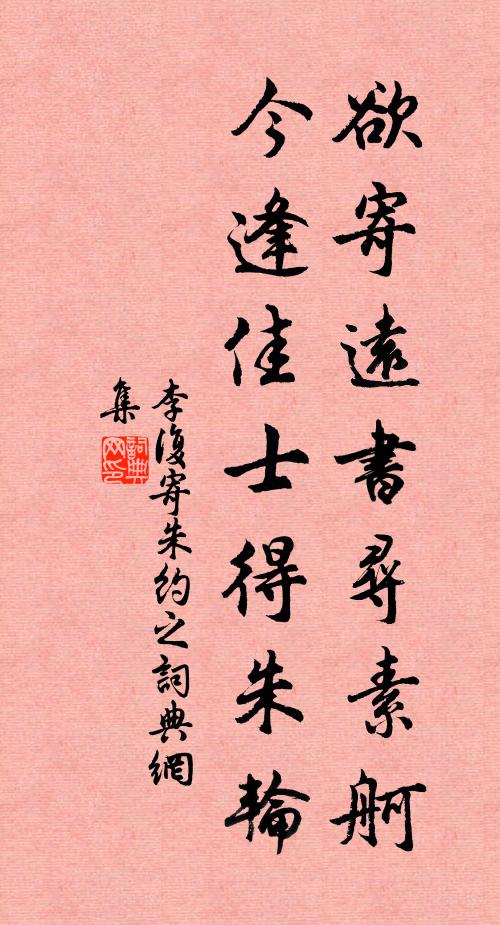 欲寄遠書尋素舸
今逢佳士得朱輪
李復寄朱約之詞典網
集
詞典网印